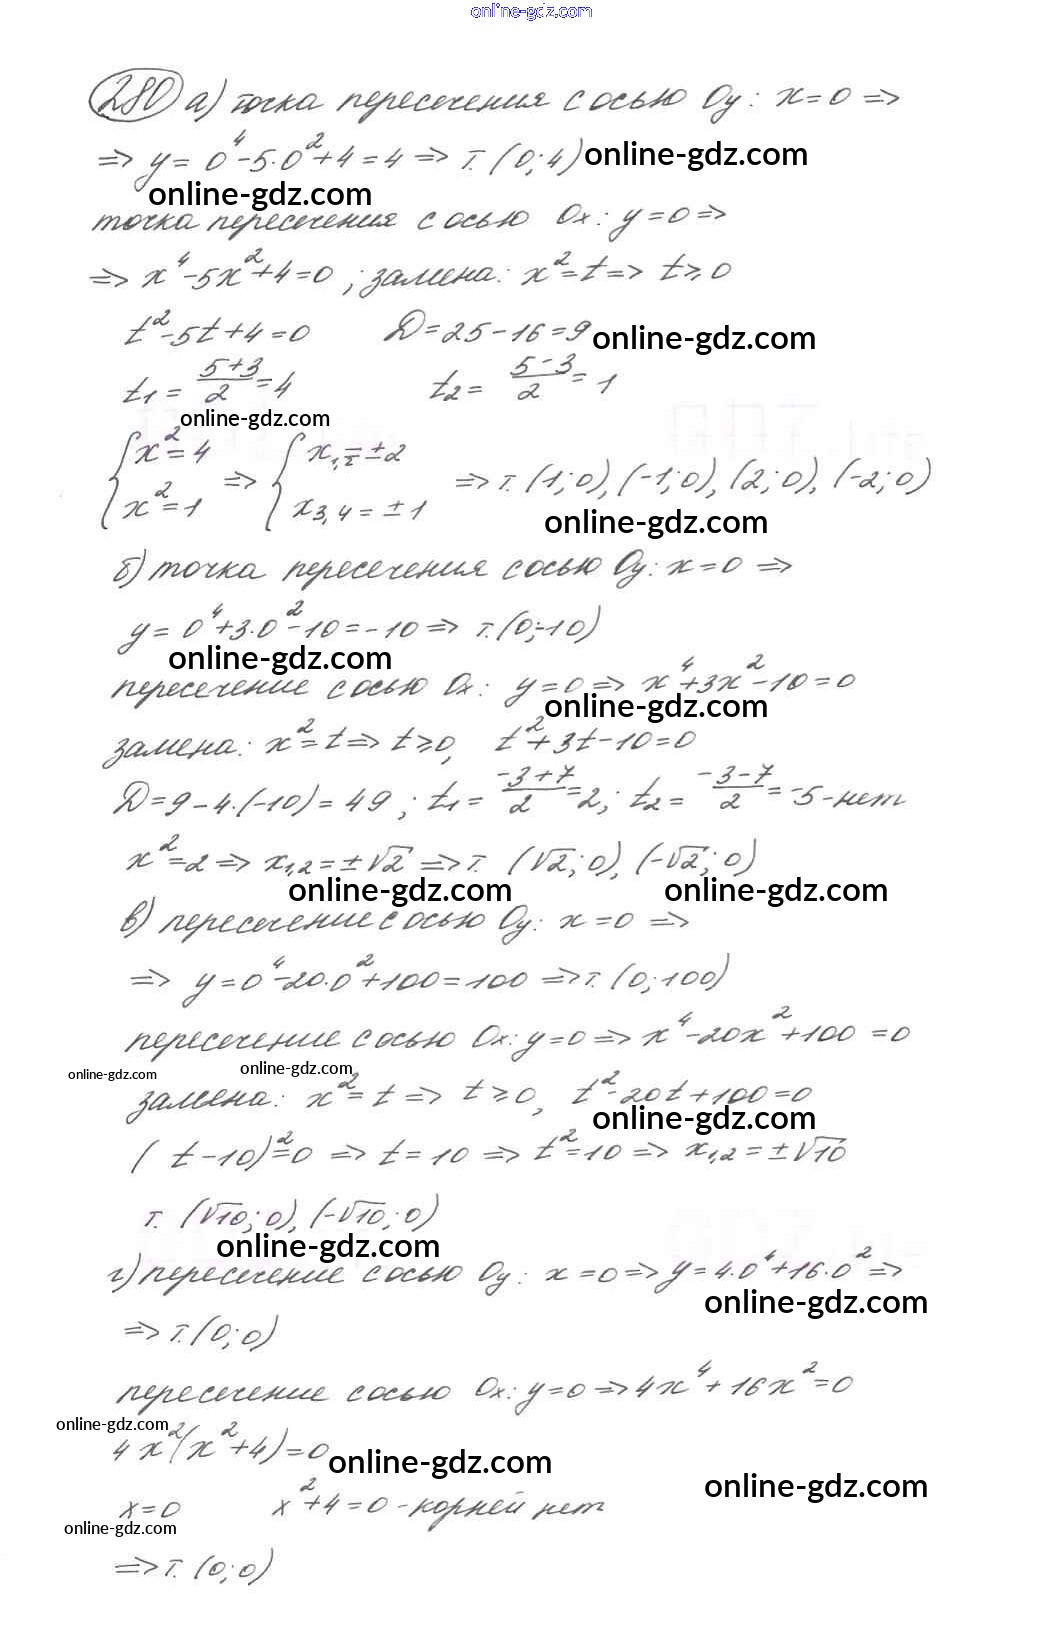 online-gdz.com
280 а) точка пересечения с осью Oy: x=0 =>
=> y= 0⁴-5·0²+4=4 => т. (0;4) online-gdz.com
online-gdz.com
точка пересечения с осью Ox: y=0 =>
=> x⁴-5x²+4=0 ; замена: x²=t => t≥0
t²-5t+4=0 D=25-16=9 online-gdz.com
t₁= (5+3)/2 =4 t₂= (5-3)/2 = 1
online-gdz.com
{x²=4 {x₁,₂=±2
{x²=1 => {x₃,₄=±1 => т. (1;0), (-1;0), (2;0), (-2;0)
online-gdz.com
б) точка пересечения с осью Oy: x=0 =>
y= 0⁴+3·0²-10=-10 => т. (0;-10)
online-gdz.com
пересечение с осью Ox: y=0 => x⁴+3x²-10=0
online-gdz.com
замена: x²=t => t≥0, t²+3t-10=0
D=9-4·(-10)=49 ; t₁= (-3+7)/2 =2; t₂= (-3-7)/2 =-5-нет
x²=2 => x₁,₂=±√2 => т. (√2;0), (-√2;0)
online-gdz.com online-gdz.com
в) пересечение с осью Oy: x=0 =>
=> y=0⁴-20·0²+100=100 => т. (0;100)
пересечение с осью Ox: y=0 => x⁴-20x²+100=0
online-gdz.com online-gdz.com
замена: x²=t => t≥0, t²-20t+100=0
online-gdz.com
(t-10)²=0 => t=10 => t²=10 => x₁,₂=±√10
т. (√10;0), (-√10;0)
online-gdz.com
г) пересечение с осью Oy: x=0 => y=4·0⁴+16·0² =>
online-gdz.com
=> т. (0;0)
пересечение с осью Ox: y=0 => 4x⁴+16x²=0
online-gdz.com
4x²(x²+4)=0 online-gdz.com
online-gdz.com
x=0 x²+4=0 -корней нет
online-gdz.com
=> т. (0;0)